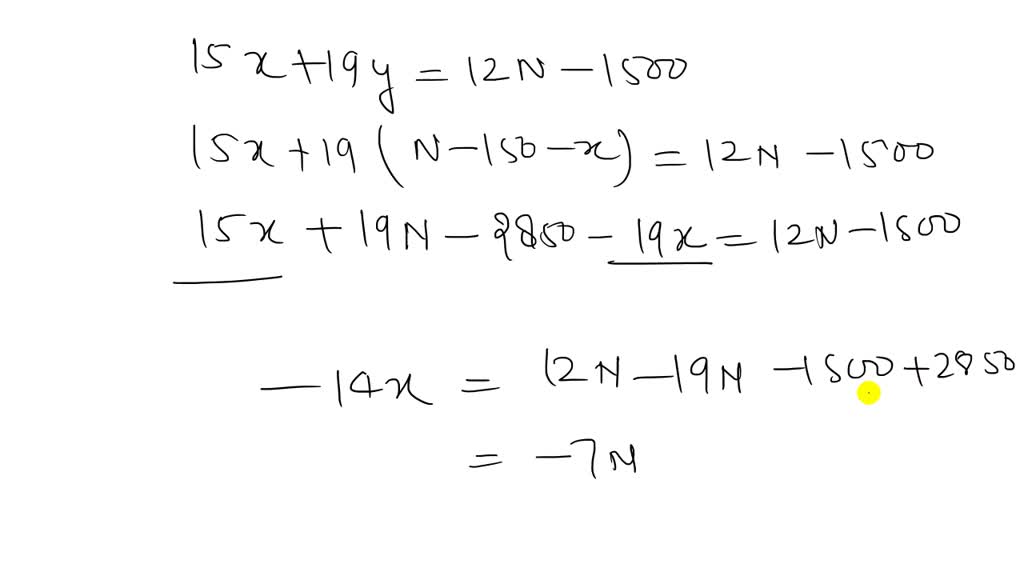 15x+19y = 12N - 1500
15x+19(N-150-x) = 12N - 1500
15x + 19N - 2850 - 19x = 12N - 1500
-14x = 12N - 19N - 1500 + 2850
= -7N